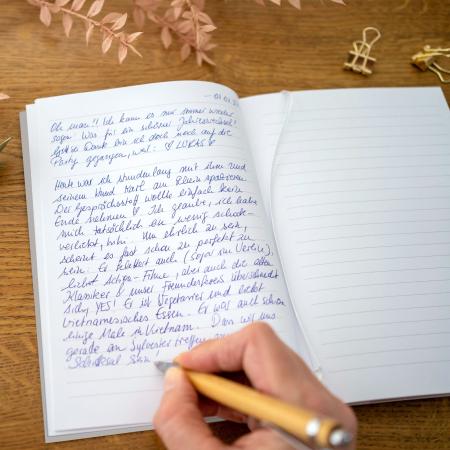 01.01.
Oh man!! Ich kann es nur immer wieder
sagen: Was für ein schöner Jahreswechsel!
Gott sei Dank bin ich doch noch auf die
Party gegangen, weil: ♡ LUKAS ♡
Heute war ich stundenlang mit ihm und
seinem Hund Karl am Rhein spazieren.
Der Gesprächsstoff wollte einfach kein
Ende nehmen ♡ Ich glaube, ich habe
mich tatsächlich ein wenig schock-
verliebt, hihi. Um ehrlich zu sein,
scheint es fast schon zu perfekt zu
sein: Er klettert auch (sogar im Verein),
liebt Science-Filme, aber auch die alten
Klassiker & unser Freundeskreis überschneidet
sich, YES! Er ist Vegetarier und liebt
vietnamesisches Essen. Er war auch schon
einige Male in Vietnam. Dass wir uns
gerade an Silvester treffen
Schicksal sein